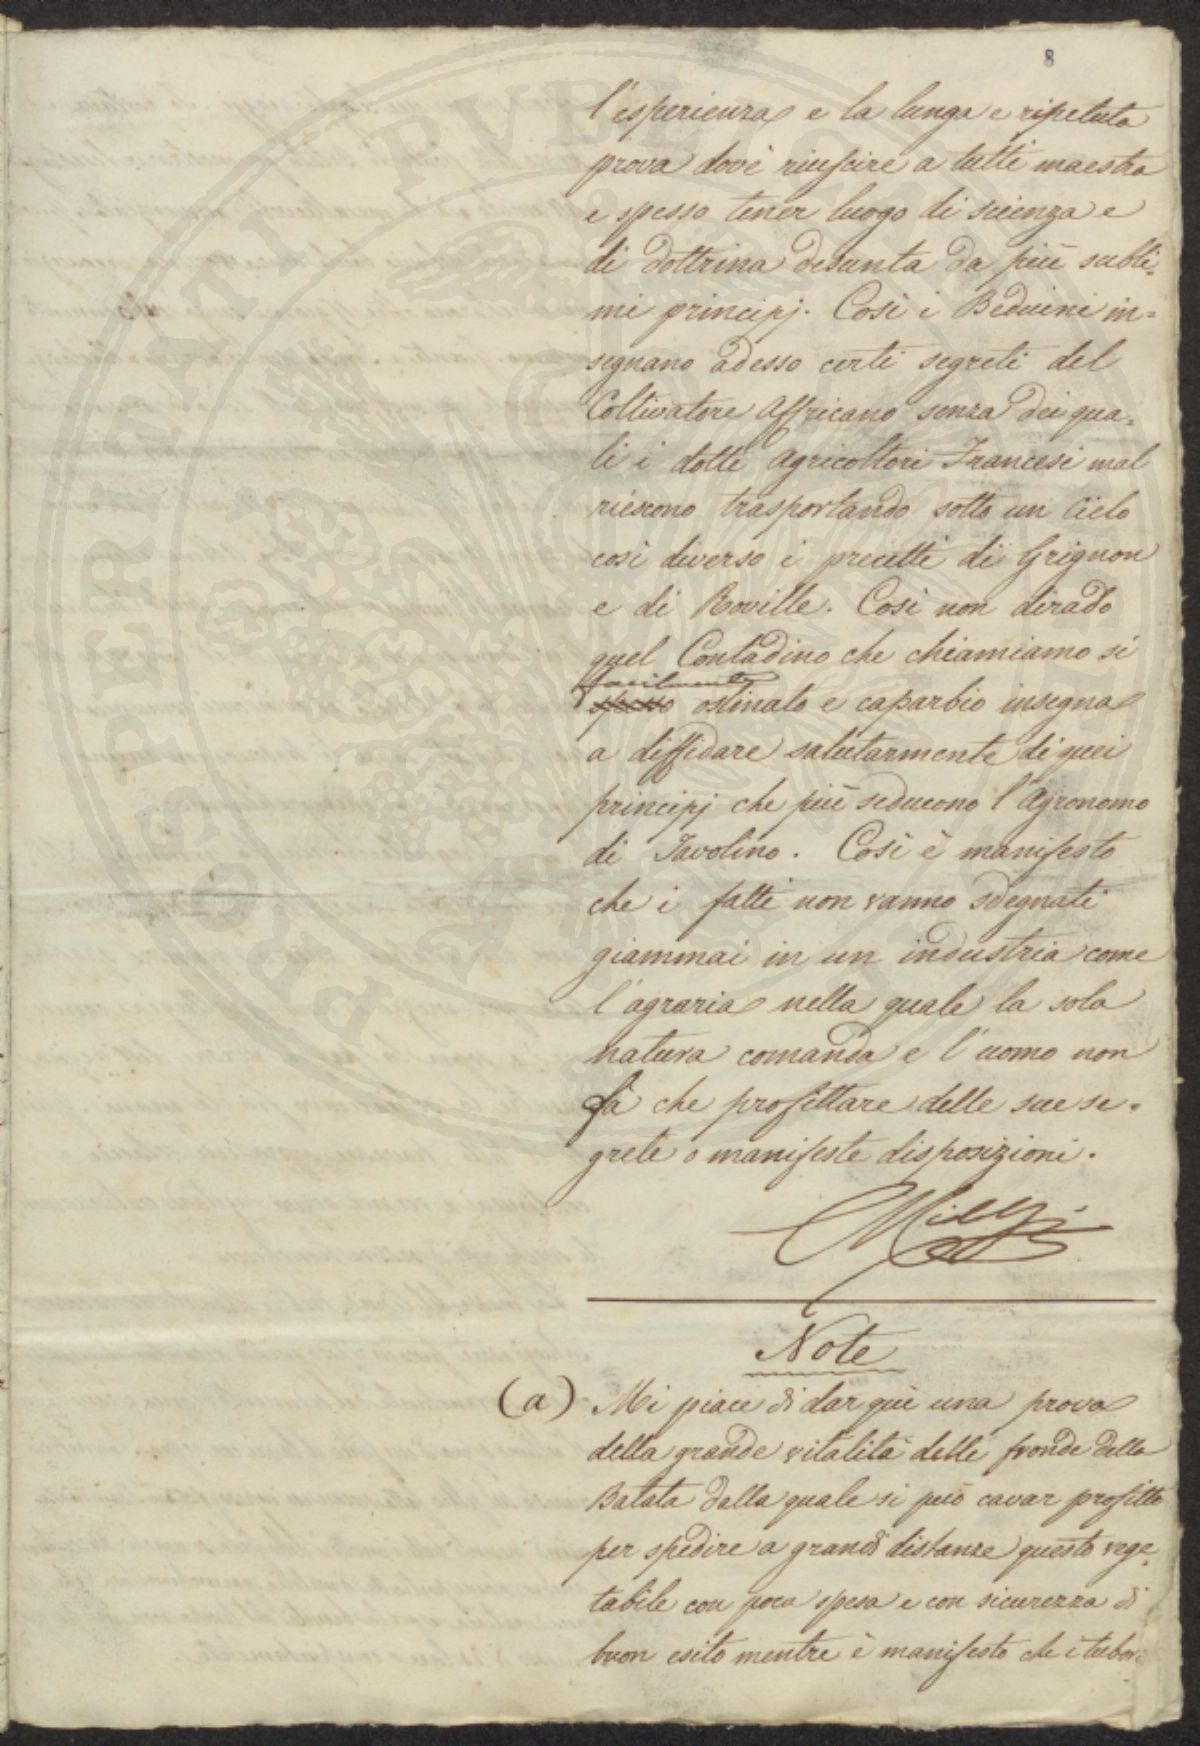 8
l'esperienza e la lunga e ripetuta
prova dovè riuscire a tutti maestra
e spesso tener luogo di scienza e
di dottrina desunta da più subli-
mi principj. Così i Beduini in=
segnano adesso certi segreti del
Coltivatore Affricano senza dei qua-
li i dotti Agricoltori Francesi mal
riescono trasportando sotto un Cielo
così diverso i precetti di Grignon
e di Roville. Così non dirado
quel Contadino che chiamiamo si
facilmente
spesso ostinato e caparbio insegna
a diffidare salutarmente di quei
principj che più seducono l'Agronomo
di Tavolino. Così è manifesto
che i fatti non vanno sdegnati
giammai in un industria come
l'agraria nella quale la sola
natura comanda e l'uomo non
fà che profittare delle sue se-
grete o manifeste disposizioni.
Note
(a) Mi piace di dar quì una prova
della grande vitalità delle fronde della
Batata dalla quale si può cavar profitto
per spedire a grandi distanze questo vege-
tabile con poca spesa e con sicurezza di
buon esito mentre è manifesto che i tuber-
PROSPERITATI PVBLICAE